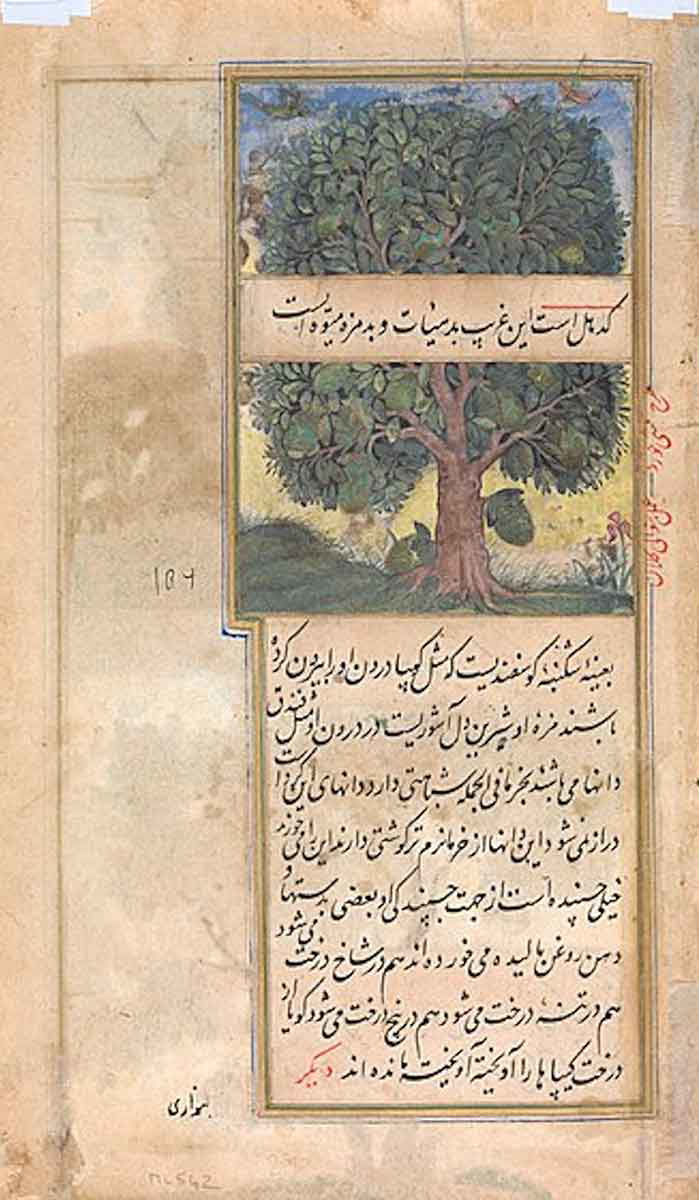 کدهل است این غریب بد هیئات و بد مزه میوه ایست
بعینه شکنبه گوسفندیست که مثل کیپا درون او را بیرون کرده
باشند مزه او شیرین دل آشوریست در درون او مثل فندق
دانها می باشند بخرما فی الجمله شباهتی دارد دانهای این گرد است
دراز نمی شود این دانها از خرما نرم تر گوشتی دارند این را می خورند
خیلی چسپنده است از جهت چسپندگی او بعضی بدستها و
دهن روغن مالیده می خورده اند هم در شاخ درخت می شود
هم در تنه درخت می شود هم در بیخ درخت می شود گویا از
درخت کیپا ها را آویخته آویخته مانده اند دیگر